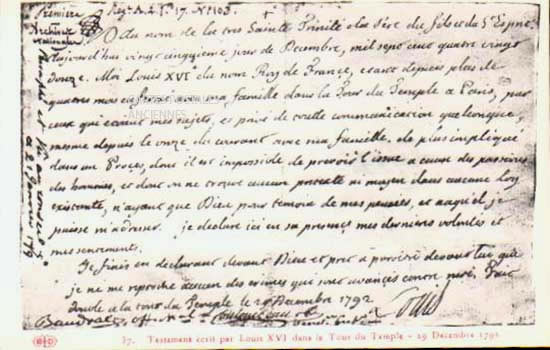 Première
Reg. A. 2. P. 17. N° 103.
Au nom de la tres Sainte Trinité du Père du fils et du St Esprit
Aujourd'hui vingt cinquieme jour de Decembre, mil sept cent quatre vingt
douze. Moi Louis XVI du nom Roy de France, etant depuis plus de
quatres mois enfermé avec ma famille dans la Tour du Temple a Paris, par
ceux qui etaient mes sujets, et privé de toutte communication quelconque,
mesme depuis le onze du courant avec ma famille. de plus impliqué
dans un Procès, dont il est impossible de prevoir l'issue a cause des passions
des hommes, et dont on ne trouve aucun pretexte ni moyen dans aucune Loy
existente, n'ayant que Dieu pour temoin de mes pensees, et auquel je
puisse m'adresser. je declare ici en sa presence mes dernieres volontés et
mes sentiments.
Je finis en declarant devant Dieu et pret a paroitre devant lui que
je ne me reproche aucun des crimes qui sont avancés contre moi. Fait
double a la tour du Temple le 25 Decembre 1792
Louis
Baudrais
ANCIENNES
ELD
37. Testament écrit par Louis XVI dans la Tour du Temple - 29 Décembre 1792